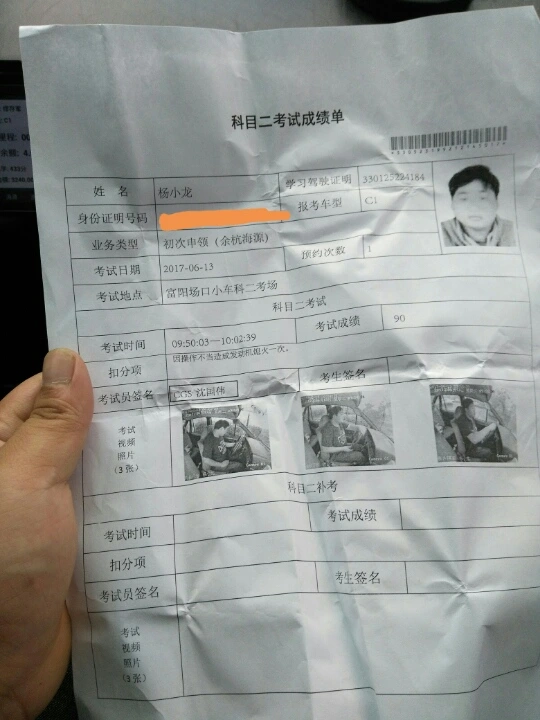 科目二考试成绩单
姓 名 杨小龙 学习驾驶证明 330125224184
身份证明号码 报考车型 C1
业务类型 初次申领（余杭海源） 预约次数 1
考试日期 2017-06-13
考试地点 富阳场口小车科二考场
科目二考试
考试时间 09:50:03—10:02:39 考试成绩 90
扣分项 因操作不当造成发动机熄火一次。
考试员签名 CGS 沈国伟 考生签名
考试
视频
照片
（3张）
科目二补考
考试时间 考试成绩
扣分项
考试员签名 考生签名
考试
视频
照片
（3张）